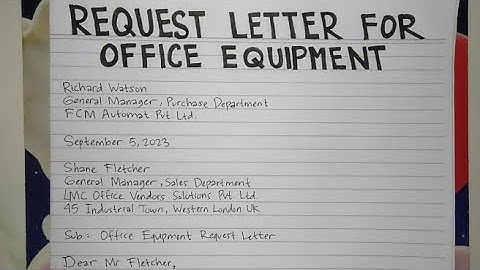 REQUEST LETTER FOR
OFFICE EQUIPMENT
Richard Watson
General Manager, Purchase Department
FCM Automat Pvt. Ltd.
September 5, 2023
Shane Fletcher
General Manager, Sales Department
LMC Office Vendors Solutions Pvt. Ltd
45 Industrial Town, Western London UK
Sub: Office Equpment Request Letter
Dear Mr Fletcher,